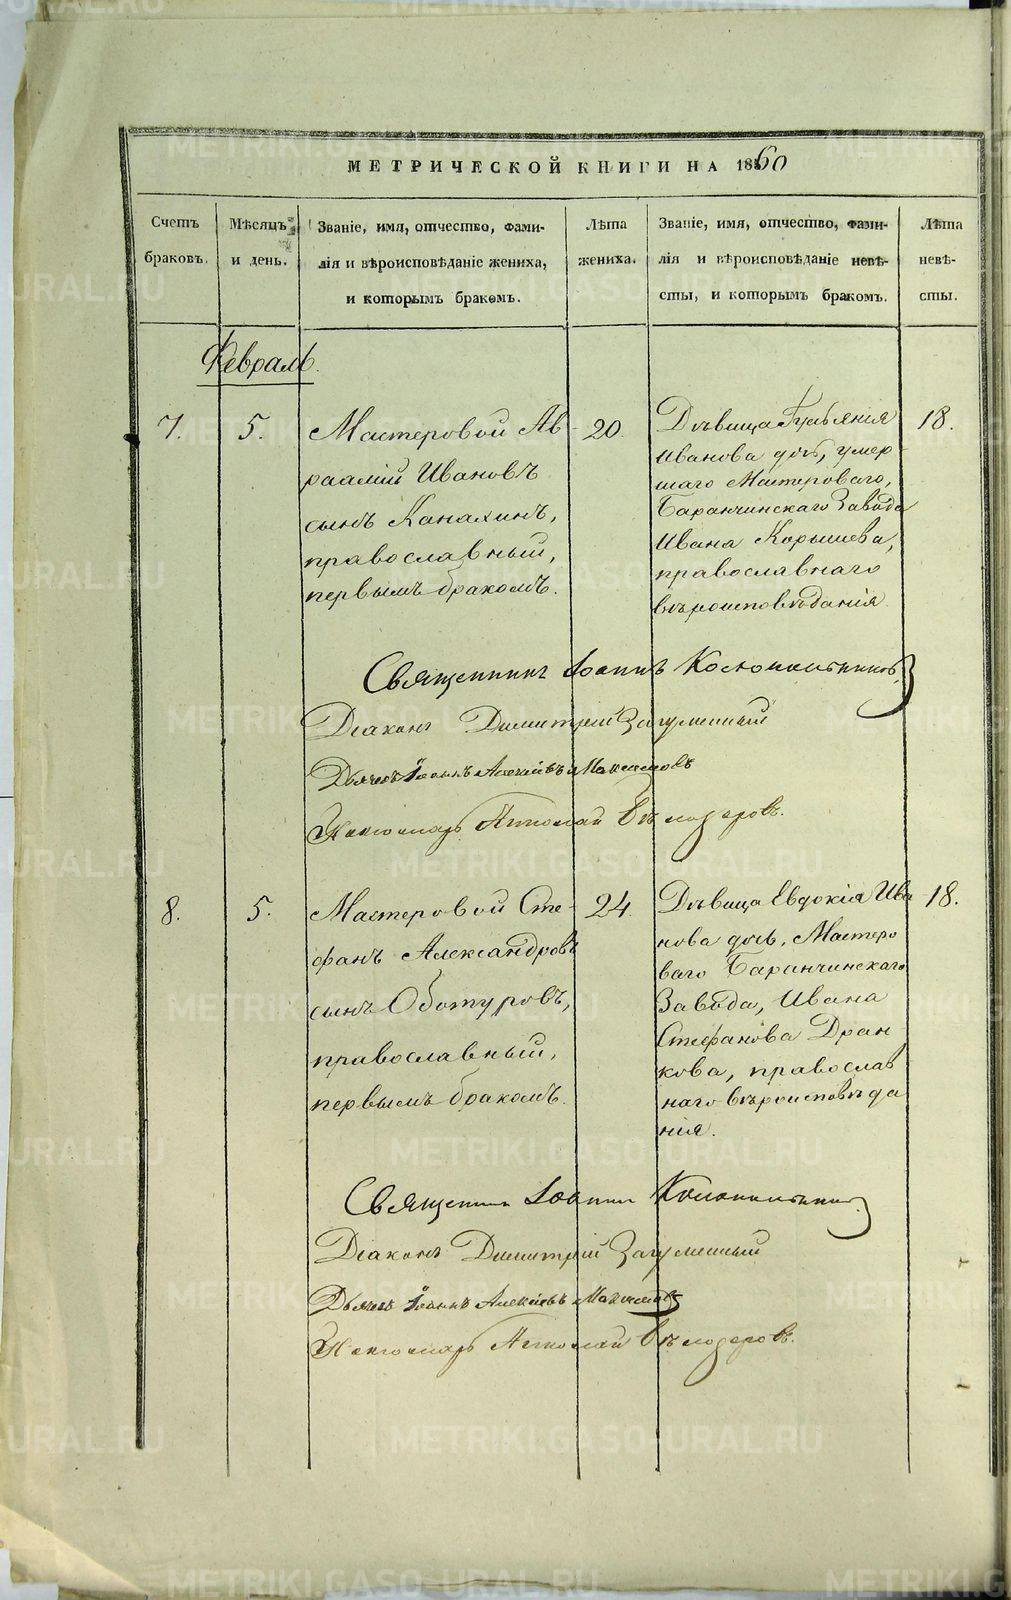 МЕТРИЧЕСКОЙ КНИГИ НА 1860
Счетъ браковъ.
Мѣсяцъ и день.
Званіе, имя, отчество, фами-
лія и вѣроисповѣданіе жениха,
и которымъ бракомъ.
Лѣта жениха.
Званіе, имя, отчество, фами-
лія и вѣроисповѣданіе невѣ-
сты, и которымъ бракомъ.
Лѣта невѣ-
сты.
Февраль.
7.
5.
Мастеровой Ав-
раамій Ивановъ
сынъ Канахинъ,
православный,
первымъ бракомъ.
20.
Дѣвица Гульянія
Иванова дочь, умер
шаго Мастероваго,
Баранчинскаго Завода
Ивана Корышева,
православнаго
вѣроисповѣданія.
18.
Священникъ Іоаннъ
Діаконъ Димитрій Загуменный
Дьячекъ Іоаннъ Алексѣевъ Максимовъ
Пономарь Николай Бѣлозеровъ.
8.
5.
Мастеровой Сте-
фанъ Александровъ
сынъ Оботуровъ,
православный,
первымъ бракомъ.
24.
Дѣвица Евдокія Ива
нова дочь, Мастеро
ваго Баранчинскаго
Завода, Ивана
Стефанова Дран
кова, православ
наго вѣроисповѣда
нія.
18.
Священникъ Іоаннъ
Діаконъ Димитрій Загуменный
Дьячекъ Іоаннъ Алексѣевъ Максимовъ
Пономарь Николай Бѣлозеровъ.
METRIKI.GASO-URAL.RU